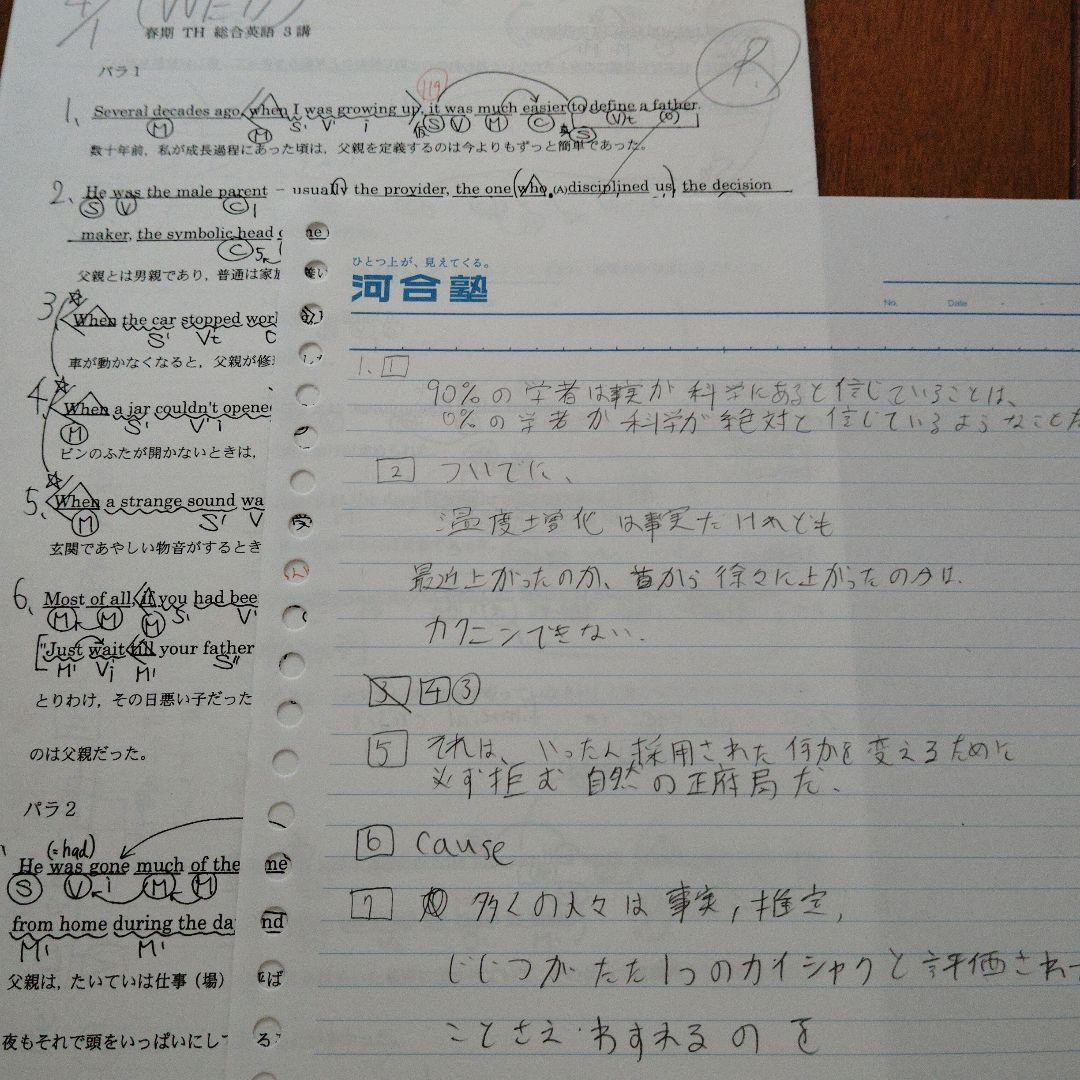 4/1 (WED)
春期 TH 総合英語 3 講
パラ 1
119
1. Several decades ago, when I was growing up, it was much easier to define a father.
M M S' V' i S V M C Vt O
真 S
数十年前，私が成長過程にあった頃は，父親を定義するのは今よりもずっと簡単であった。
2. He was the male parent – usually the provider, the one who (A)disciplined us, the decision
S V C1
maker, the symbolic head
C5
父親とは男親であり，普通は家
3. When the car stopped wor
S' Vt
車が動かなくなると，父親が修
4. When a jar couldn't opene
M S' V'i
ビンのふたが開かないときは，
5. When a strange sound wa
M S' V
玄関であやしい物音がするとき
6. Most of all, if you had bee
M M M S' V'
"Just wait till your father
M' Vi M' S"
とりわけ，その日悪い子だった
のは父親だった。
パラ 2
(= had)
He was gone much of the me
S V i M M
from home during the da nd
M' M'
父親は，たいていは仕事（場）
夜もそれで頭をいっぱいにし
ひとつ上が、見えてくる。
河合塾
No. Date
1. 1
90%の学者は事実が科学にあると信じていることは、
0%の学者が科学が絶対と信じているようなことだ
2 ついでに、
温度増化は事実だけれども
最近上がったのか、昔から徐々に上がったのかは、
カクニンできない.
3 4 ③
5 それは、いったん採用された何かを変えるために
必ず拒む自然の正府局だ.
6 cause
7 多くの人々は事実, 推定,
じじつがたた1つのカイシャクと評価され
ことさえわすれるのを